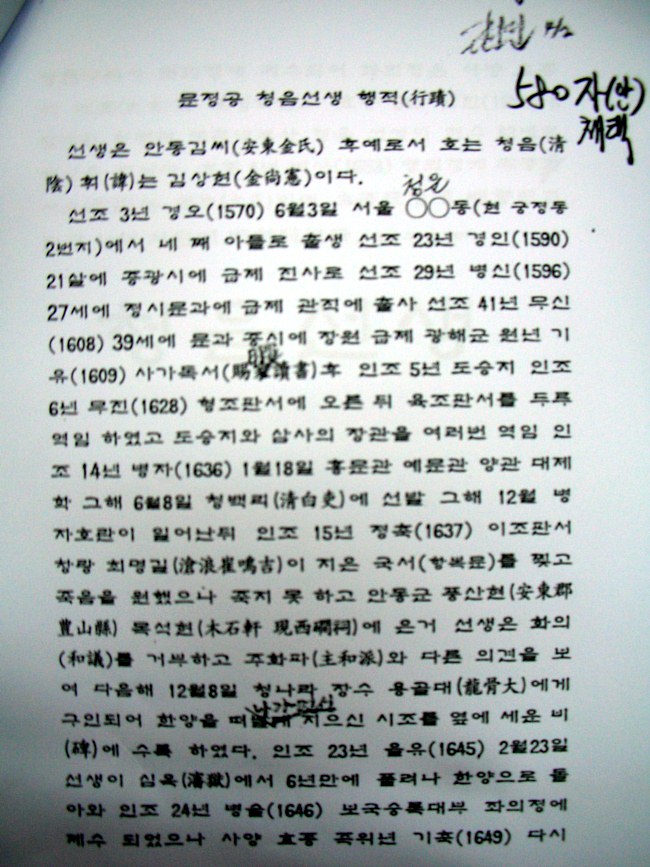 580자(안)
채택
문정공 청음선생 행적(行蹟)
선생은 안동김씨(安東金氏) 후예로서 호는 청음(清
陰) 휘(諱)는 김상헌(金尚憲)이다.
선조 3년 경오(1570) 6월3일 서울 ○○동(현 궁정동
2번지)에서 네 째 아들로 출생 선조 23년 경인(1590)
21살에 증광시에 급제 진사로 선조 29년 병신(1596)
27세에 정시문과에 급제 관직에 출사 선조 41년 무신
(1608) 39세에 문과 중시에 장원 급제 광해군 원년 기
유(1609) 사가독서(賜家讀書)후 인조 5년 도승지 인조
6년 무진(1628) 형조판서에 오른 뒤 육조판서를 두루
역임 하였고 도승지와 삼사의 장관을 여러번 역임 인
조 14년 병자(1636) 1월18일 홍문관 예문관 양관 대제
학 그해 6월8일 청백리(清白吏)에 선발 그해 12월 병
자호란이 일어난뒤 인조 15년 정축(1637) 이조판서
창랑 최명길(滄浪崔鳴吉)이 지은 국서(항복문)를 찢고
죽음을 원했으나 죽지 못 하고 안동군 풍산현(安東郡
豊山縣) 목석헌(木石軒 現西磵祠)에 은거 선생은 화의
(和議)를 거부하고 주화파(主和派)와 다른 의견을 보
여 다음해 12월8일 청나라 장수 용골대(龍骨大)에게
구인되어 한양을 지으신 시조를 옆에 세운 비
(碑)에 수록 하였다. 인조 23년 을유(1645) 2월23일
선생이 심옥(瀋獄)에서 6년만에 풀려나 한양으로 돌
아와 인조 24년 병술(1646) 보국숭록대부 좌의정에
제수 되었으나 사양 효종 즉위년 기축(1649) 다시